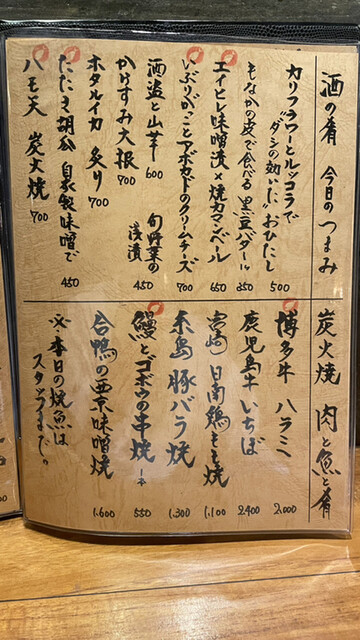 酒の肴 今日のつまみ
カリフラワーとルッコラで
"ダシの効いた"おひたし 500
もなかの皮で食べる"黒豆バター" 350
エイヒレ味噌漬×焼カマンベール 650
いぶりがっことアボカドのクリームチーズ 700
酒盗と山芋 600
旬野菜の
浅漬 450
からすみ大根 700
ホタルイカ 炙り 700
たたき胡瓜 自家製味噌で 450
ハモ天 炭火焼 700
炭火焼 肉と魚と肴
博多牛 ハラミ 2.000
鹿児島牛 いちぼ 2400
宮崎 日南鶏もも焼 1.100
糸島豚バラ焼 1.300
鰻とゴボウの串焼 一本 550
合鴨の西京味噌焼 1.600
※本日の焼魚は
スタッフまで。